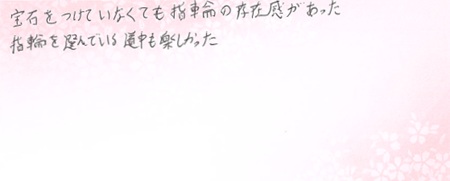 宝石をつけていなくても指輪の存在感があった
指輪を選んでいる道中も楽しかった